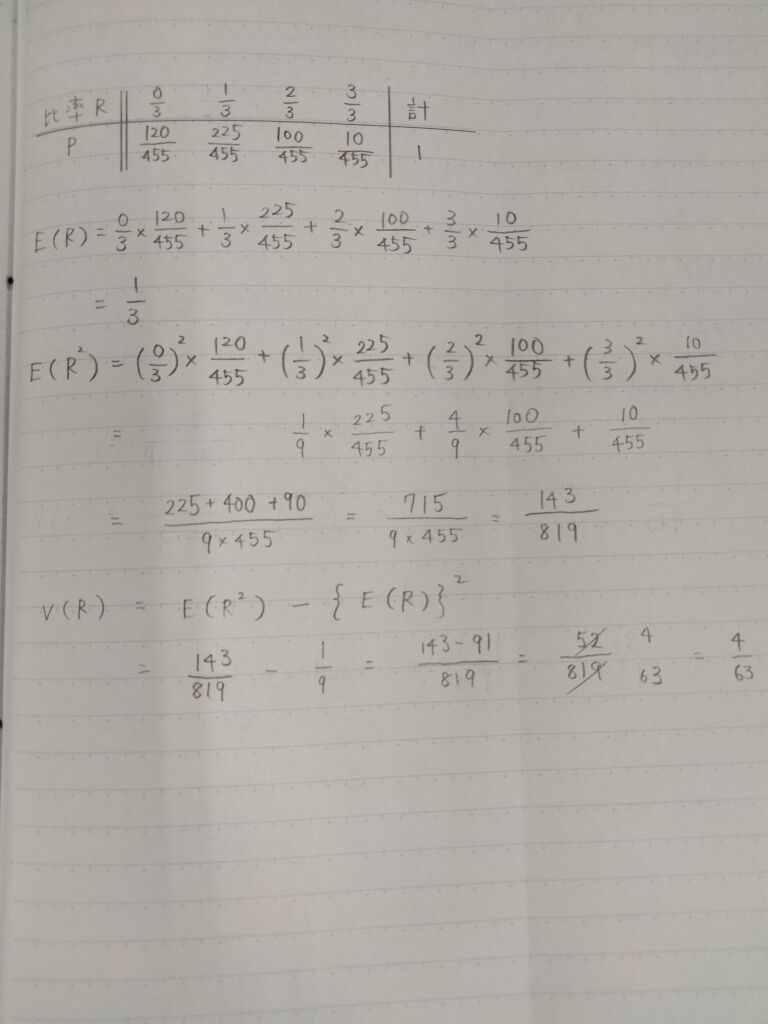 比率 R 0/3 1/3 2/3 3/3 計
P 120/455 225/455 100/455 10/455 1
E(R) = 0/3 × 120/455 + 1/3 × 225/455 + 2/3 × 100/455 + 3/3 × 10/455
= 1/3
E(R²) = (0/3)² × 120/455 + (1/3)² × 225/455 + (2/3)² × 100/455 + (3/3)² × 10/455
= 1/9 × 225/455 + 4/9 × 100/455 + 10/455
= (225+400+90)/(9×455) = 715/(9×455) = 143/819
V(R) = E(R²) − {E(R)}²
= 143/819 − 1/9 = (143−91)/819 = 52/819 4 63 = 4/63